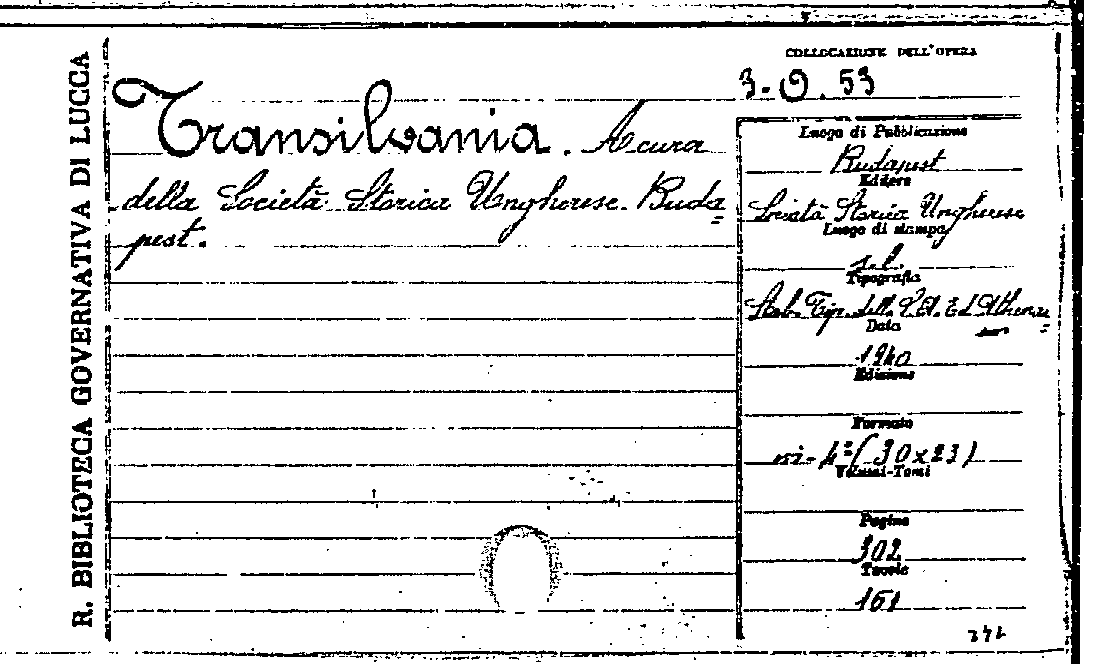 R. BIBLIOTECA GOVERNATIVA DI LUCCA
COLLOCAZIONE DELL'OPERA
3-O.53
Transilvania. A cura
della Società Storica Ungherese. Buda=
pest.
Luogo di Pubblicazione
Budapest
Editore
Società Storica Ungherese
Luogo di stampa
s.l.
Tipografia
Stab. Tip. della Ed. Athenae=
um
Data
1940
Edizione
Formato
in-4°(30x23)
Volumi-Tomi
Pagine
302
Tavole
161